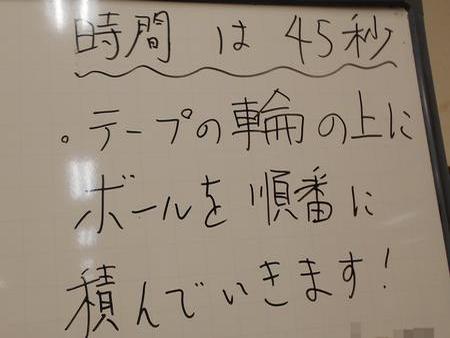 時間 は 45秒
。テープの輪の上に
ボールを 順番に
積んでいきます!